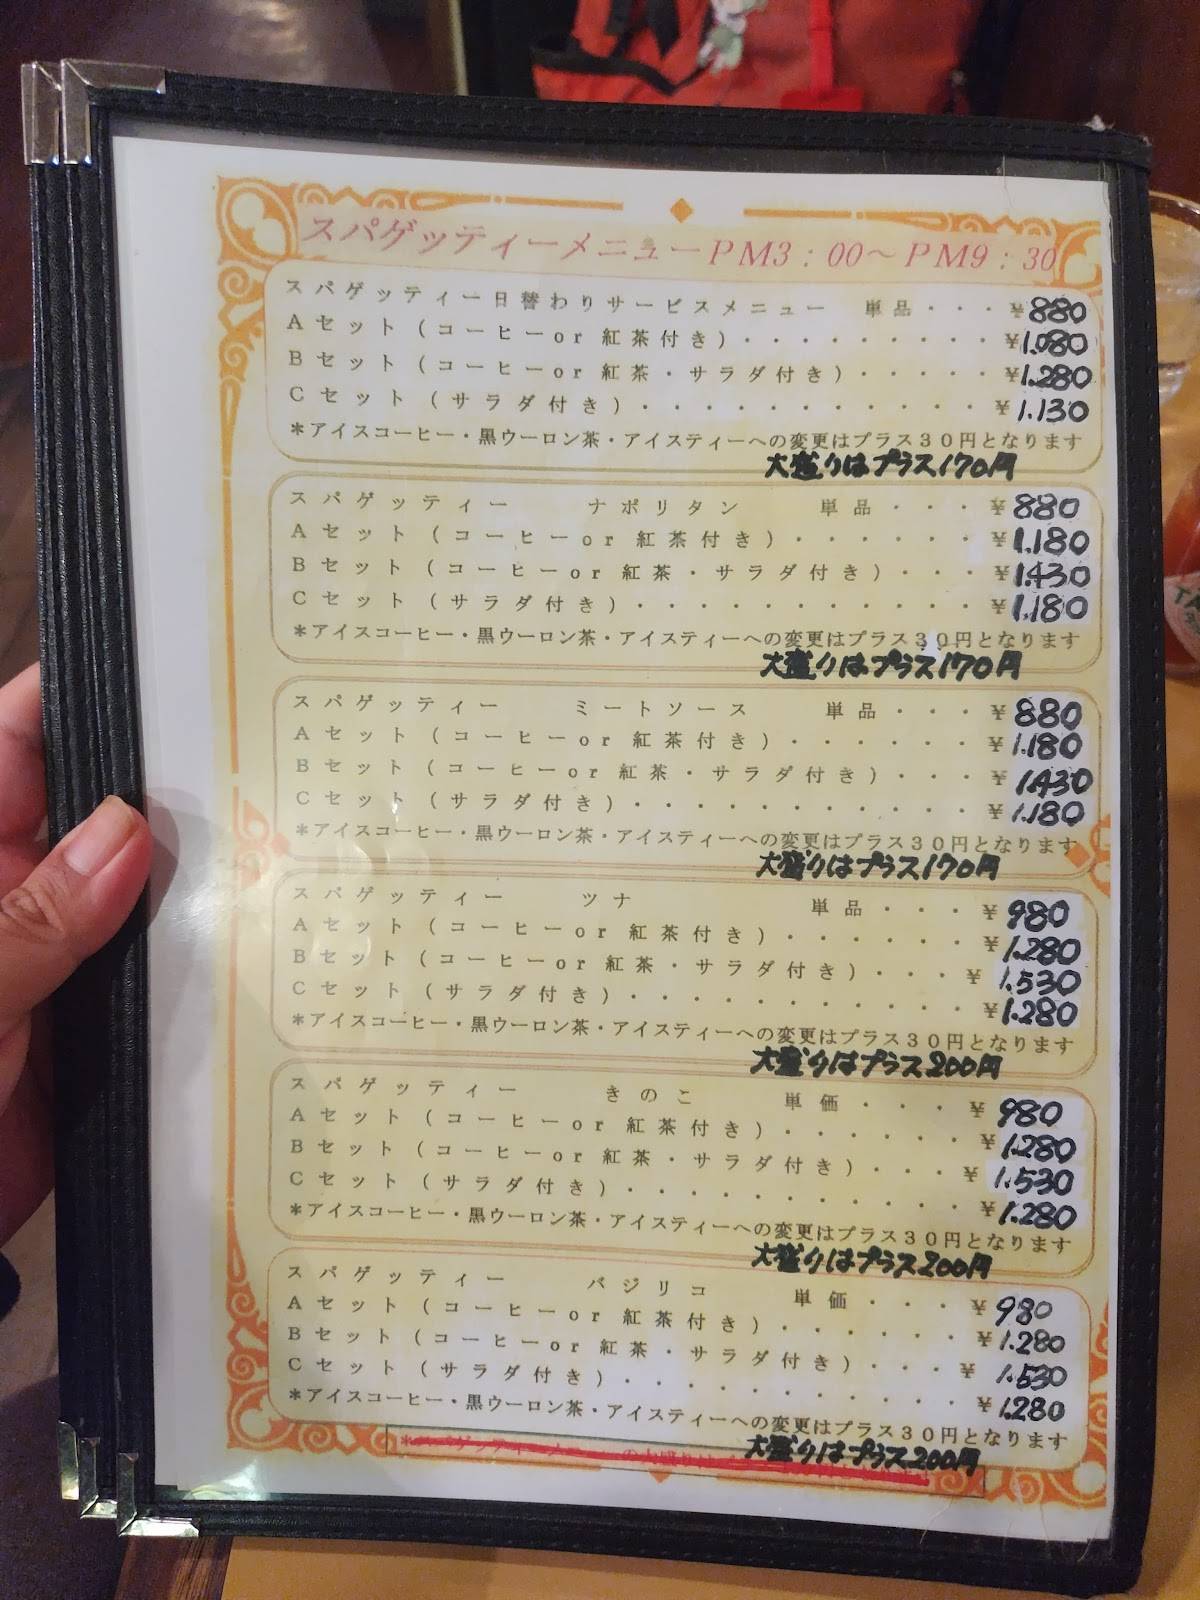 スパゲッティーメニューPM3：00～PM9：30
スパゲッティー日替わりサービスメニュー 単品・・・¥880
Aセット（コーヒーor 紅茶付き）・・・・・・・・・¥1.080
Bセット（コーヒーor 紅茶・サラダ付き）・・・・・¥1.280
Cセット（サラダ付き）・・・・・・・・・・・・¥1.130
＊アイスコーヒー・黒ウーロン茶・アイスティーへの変更はプラス30円となります
大盛りはプラス170円
スパゲッティー ナポリタン 単品・・・¥880
Aセット（コーヒーor 紅茶付き）・・・・・・¥1.180
Bセット（コーヒーor 紅茶・サラダ付き）・・・¥1.430
Cセット（サラダ付き）・・・・・・・・・・・¥1.180
＊アイスコーヒー・黒ウーロン茶・アイスティーへの変更はプラス30円となります
大盛りはプラス170円
スパゲッティー ミートソース 単品・・・¥880
Aセット（コーヒーor 紅茶付き）・・・・・・¥1.180
Bセット（コーヒーor 紅茶・サラダ付き）・・・¥1430
Cセット（サラダ付き）・・・・・・・・・・・¥1.180
＊アイスコーヒー・黒ウーロン茶・アイスティーへの変更はプラス30円となります
大盛りはプラス170円
スパゲッティー ツナ 単品・・・¥980
Aセット（コーヒーor 紅茶付き）・・・・・・¥1.280
Bセット（コーヒーor 紅茶・サラダ付き）・・・¥1.530
Cセット（サラダ付き）・・・・・・・・・・・¥1.280
＊アイスコーヒー・黒ウーロン茶・アイスティーへの変更はプラス30円となります
大盛りはプラス200円
スパゲッティー きのこ 単価・・・¥980
Aセット（コーヒーor 紅茶付き）・・・・・・¥1.280
Bセット（コーヒーor 紅茶・サラダ付き）・・・¥1.530
Cセット（サラダ付き）・・・・・・・・・・・¥1.280
＊アイスコーヒー・黒ウーロン茶・アイスティーへの変更はプラス30円となります
大盛りはプラス200円
スパゲッティー バジリコ 単価・・・¥980
Aセット（コーヒーor 紅茶付き）・・・・・・¥1.280
Bセット（コーヒーor 紅茶・サラダ付き）・・・¥1.530
Cセット（サラダ付き）・・・・・・・・・・・¥1.280
＊アイスコーヒー・黒ウーロン茶・アイスティーへの変更はプラス30円となります
大盛りはプラス200円